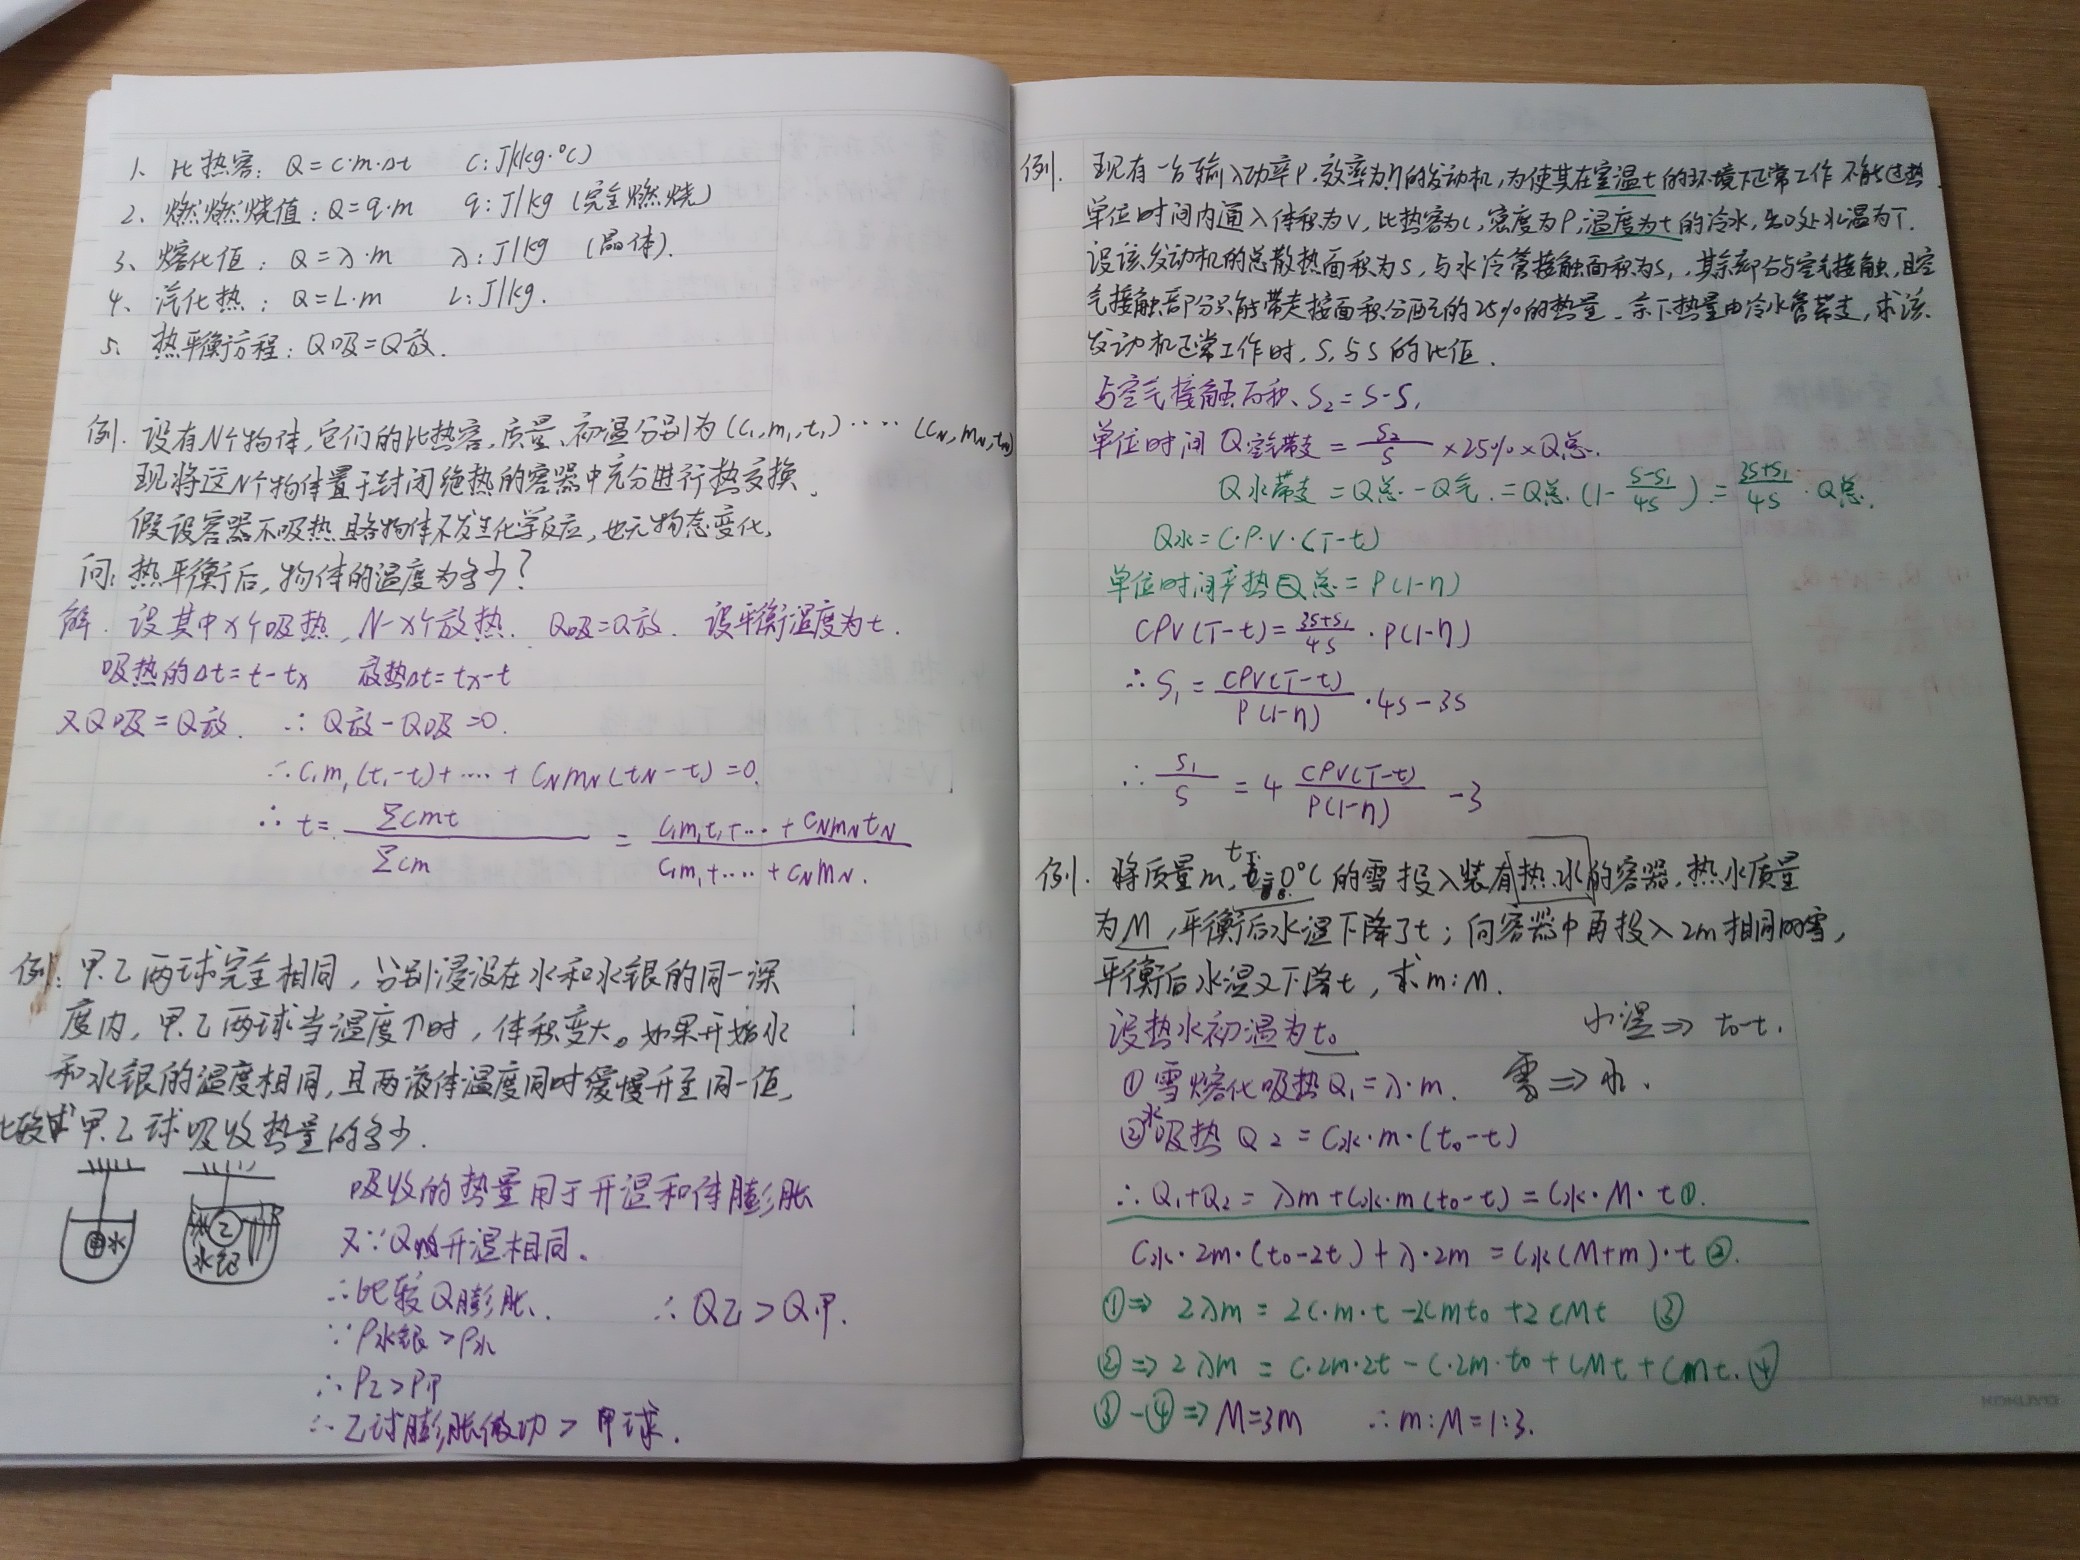 1、比热容：Q=c·m·Δt  C：J/(kg·℃)
2、燃燃烧值：Q=q·m  q：J/kg（完全燃烧）
3、熔化值：Q=λ·m  λ：J/kg （晶体）.
4、汽化热：Q=L·m  L：J/kg.
5、热平衡方程：Q吸=Q放.
例. 设有N个物体,它们的比热容,质量、初温分别为(C₁,m₁,t₁)····(C_N,m_N,t_N)
现将这N个物体置于封闭绝热的容器中充分进行热交换、
假设容器不吸热且各物体不发生化学反应,也无物态变化,
问：热平衡后,物体的温度为多少？
解. 设其中x个吸热,N-x个放热. Q吸=Q放. 设平衡温度为t.
吸热的Δt=t-tx  放热Δt=tx-t
又Q吸=Q放. ∴Q放-Q吸=0.
∴C₁m₁(t₁-t)+····+C_Nm_N(t_N-t)=0.
∴t=Σcmt/Σcm=(C₁m₁t₁+···+C_Nm_Nt_N)/(C₁m₁+····+C_Nm_N).
例：甲.乙两球完全相同,分别浸没在水和水银的同一深
度内,甲.乙两球当温度↑时,体积变大。如果开始水
和水银的温度相同,且两液体温度同时缓慢升至同一值,
比较甲.乙球吸收热量的多少.
甲水
乙
水银
吸收的热量用于升温和体膨胀
又∵Q升温相同.
∴比较Q膨胀.  ∴Q乙>Q甲.
∵ρ水银>ρ水
∴P乙>P甲
∴乙球膨胀做功>甲球.
例. 现有一台输入功率P,效率为η的发动机,为使其在室温t的环境下正常工作不能过热.
单位时间内通入体积为V,比热容为C,密度为ρ,温度为t的冷水,出口处水温为T.
设该发动机的总散热面积为S,与水冷管接触面积为S₁,其余部分与空气接触,且空
气接触部分只能带走按面积分配的25%的热量.余下热量由冷水管带走,求该
发动机正常工作时,S₁与S的比值.
与空气接触面积、S₂=S-S₁
单位时间Q空气带走=S₂/S×25%×Q总.
Q水带走=Q总-Q气.=Q总.(1-(S-S₁)/4S)=(3S+S₁)/4S·Q总.
Q水=C·ρ·V·(T-t)
单位时间产热Q总=P(1-η)
CρV(T-t)=(3S+S₁)/4S·P(1-η)
∴S₁=CρV(T-t)/P(1-η)·4S-3S
∴S₁/S=4 CρV(T-t)/P(1-η) -3
例. 将质量m,t=0℃的雪投入装有热水的容器,热水质量
为M,平衡后水温下降了t；向容器中再投入2m相同的雪,
平衡后水温又下降t,求m:M.
设热水初温为t₀  水温⇒t₀-t.
①雪熔化吸热Q₁=λ·m.  雪⇒水.
②水吸热 Q₂=C水·m·(t₀-t)
∴Q₁+Q₂=λm+C水·m(t₀-t)=C水·M·t①.
C水·2m·(t₀-2t)+λ·2m=C水(M+m)·t②.
①⇒2λm=2C·m·t-2Cmt₀+2CMt ③
②⇒2λm=C·2m·2t-C·2m·t₀+CMt+Cmt.④
③-④⇒M=3m  ∴m:M=1:3.
KOKUYO